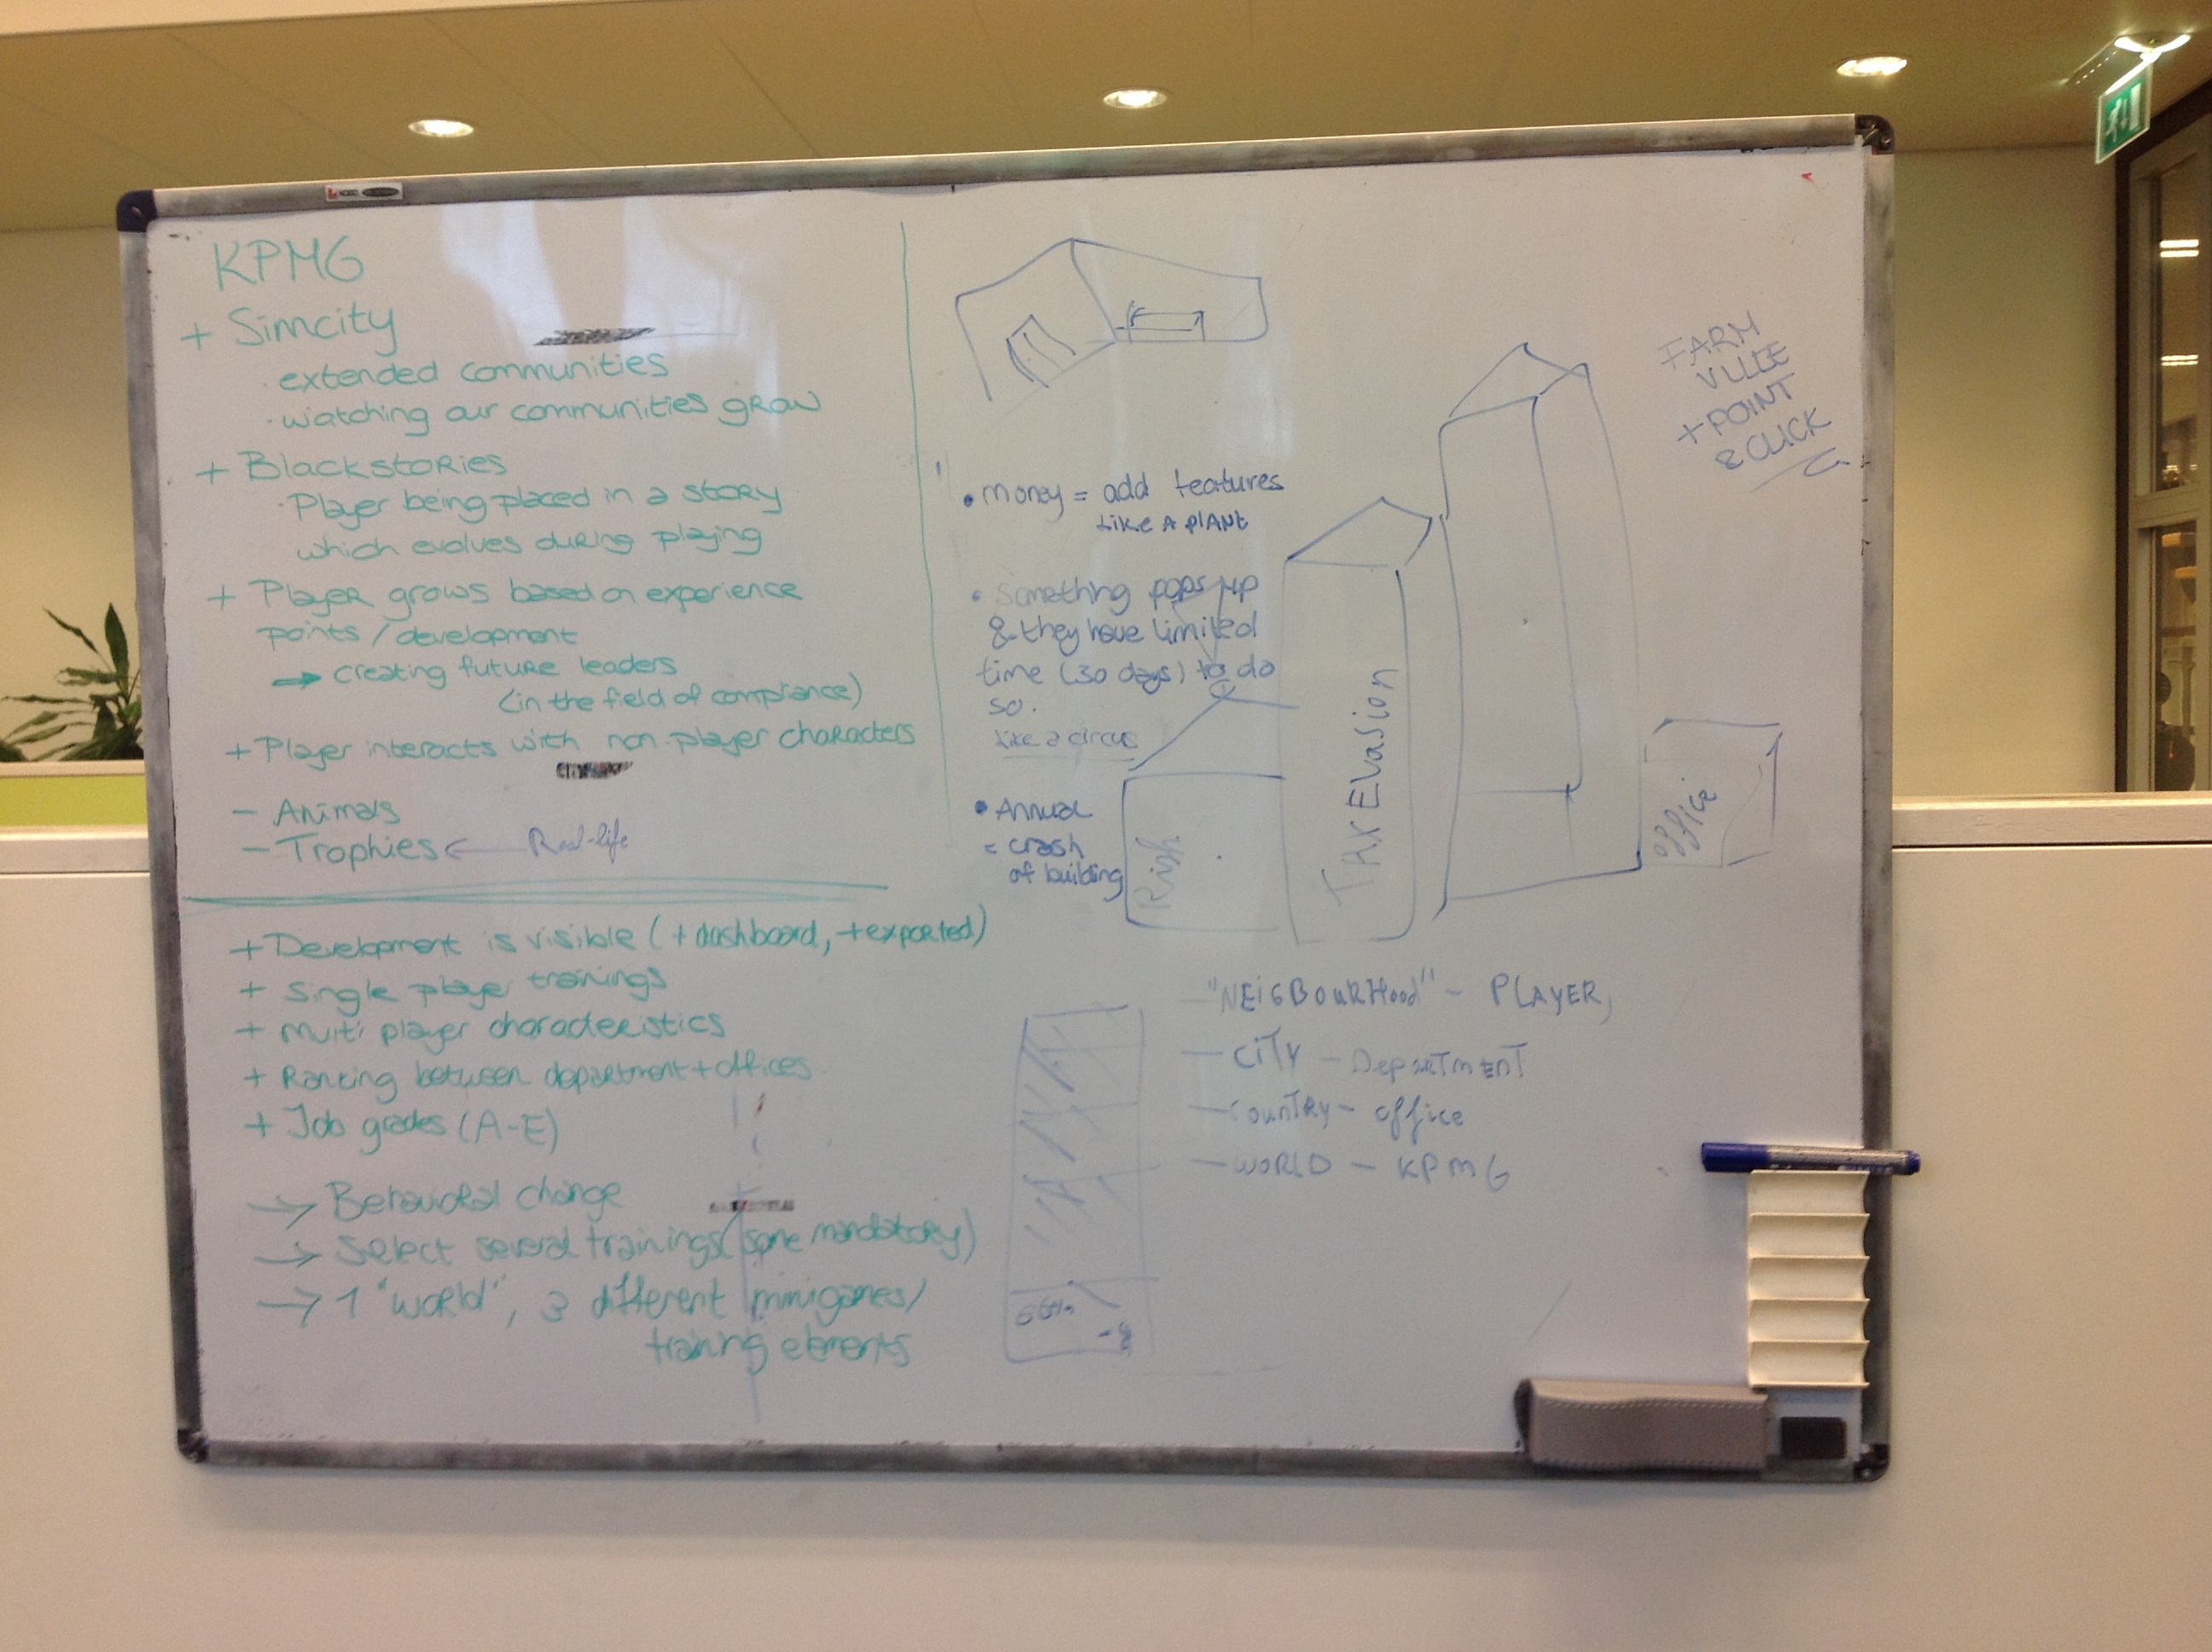 KPMG
+ Simcity
· extended communities
· watching our communities grow
+ Blackstories
· Player being placed in a story
which evolves during playing
+ Player grows based on experience
points / development
→ creating future leaders
(in the field of compliance)
+ Player interacts with non player characters
- Animals
- Trophies ← Real-life
+ Development is visible (+ dashboard, + exported)
+ Single player trainings
+ Multi player characteristics
+ Ranking between department + offices
+ Job grades (A-E)
→ Behavioral change
→ Select several trainings (some mandatory)
→ 1 "world", 3 different minigames/
training elements
• money = add features
Like A plANt
• Something pops up
& they have limited
time (30 days) to do
so.
like a circus
• Annual
= crash
of building
Risk
TAX EVasion
office
FARM
VILLE
+ POINT
& CLICK
- "NEiGBOuRHood" - PLAYER,
- CiTY - DepaRTmENT
- CounTRy - office
- WORLD - KPMG